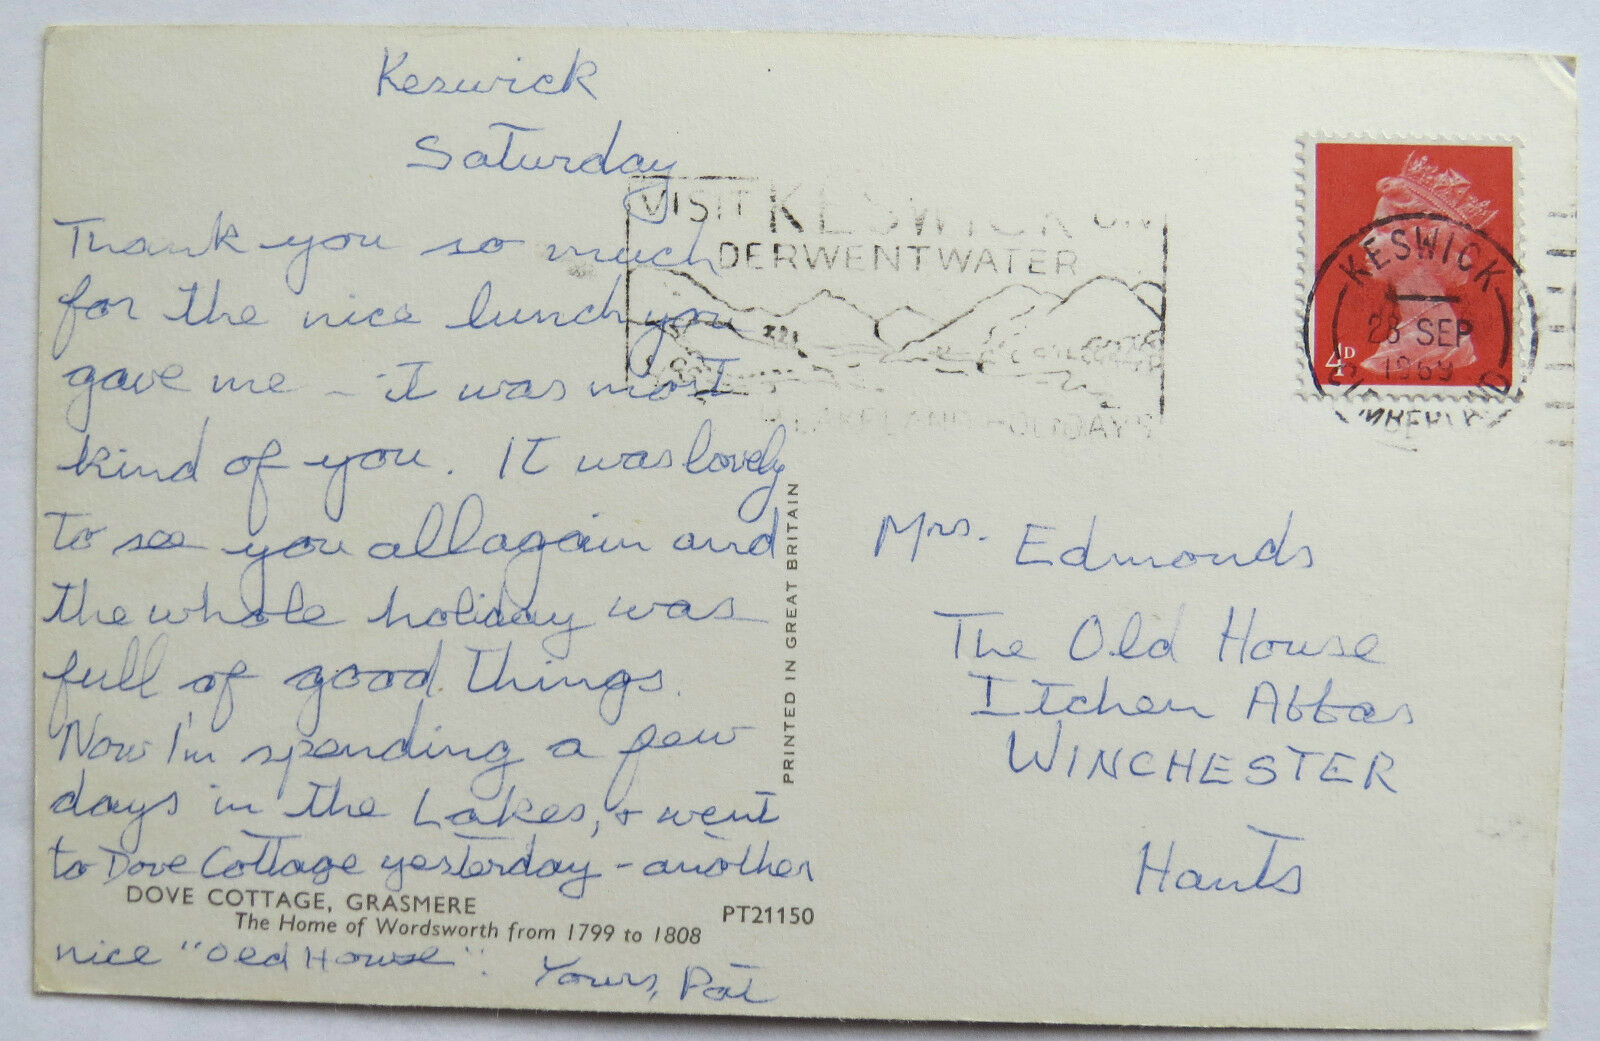 Keswick
Saturday
Thank you so much
for the nice lunch you
gave me – it was most
kind of you. It was lovely
to see you all again and
the whole holiday was
full of good things.
Now I'm spending a few
days in the Lakes, & went
to Dove Cottage yesterday – another
nice "Old House". Yours, Pat
DOVE COTTAGE, GRASMERE
The Home of Wordsworth from 1799 to 1808
PT21150
PRINTED IN GREAT BRITAIN
VISIT KESWICK ON
DERWENTWATER
LAKELAND HOLIDAYS
KESWICK
28 SEP
1969
CUMBERLAND
4D
Mrs. Edmonds
The Old House
Itchen Abbas
WINCHESTER
Hants